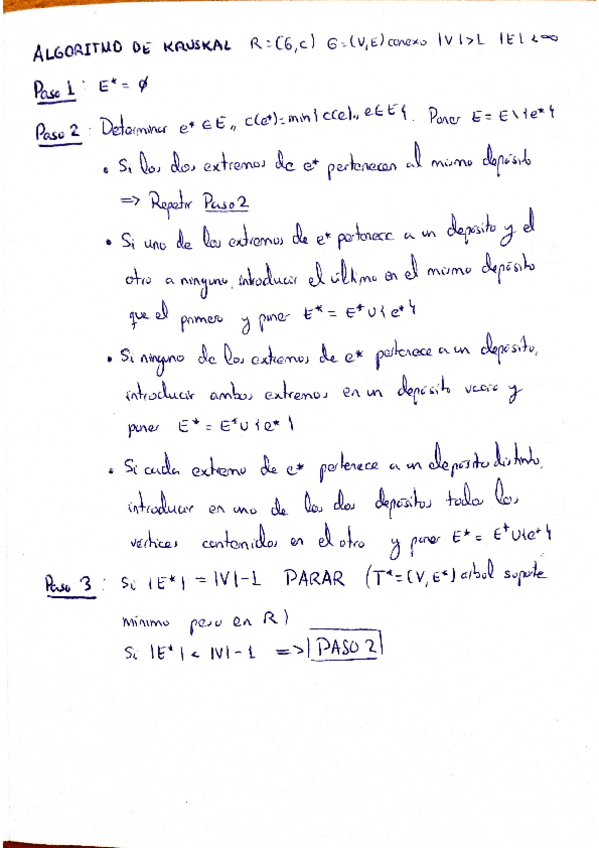 ALGORITMO DE KRUSKAL R=(G,c) G=(V,E) conexo |V|>1 |E|<∞
Paso 1: E* = ∅
Paso 2: Determinar e* ∈ E,, c(e*)=min{c(e),, e∈E}. Poner E = E\{e*}
• Si los dos extremos de e* pertenecen al mismo depósito
=> Repetir Paso 2
• Si uno de los extremos de e* pertenece a un deposito y el
otro a ninguno, introducir el último en el mismo depósito
que el primero y poner E* = E* ∪ {e*}
• Si ninguno de los extremos de e* pertenece a un deposito,
introducir ambos extremos en un deposito vacio y
poner E* = E* ∪ {e*}
• Si cada extremo de e* pertenece a un deposito distinto,
introducir en uno de los dos depósitos todos los
vértices contenidos en el otro y poner E* = E* ∪ {e*}
Paso 3: Si |E*| = |V|-1 PARAR (T*=(V,E*) árbol soporte
mínimo peso en R)
Si |E*| < |V|-1 => PASO 2